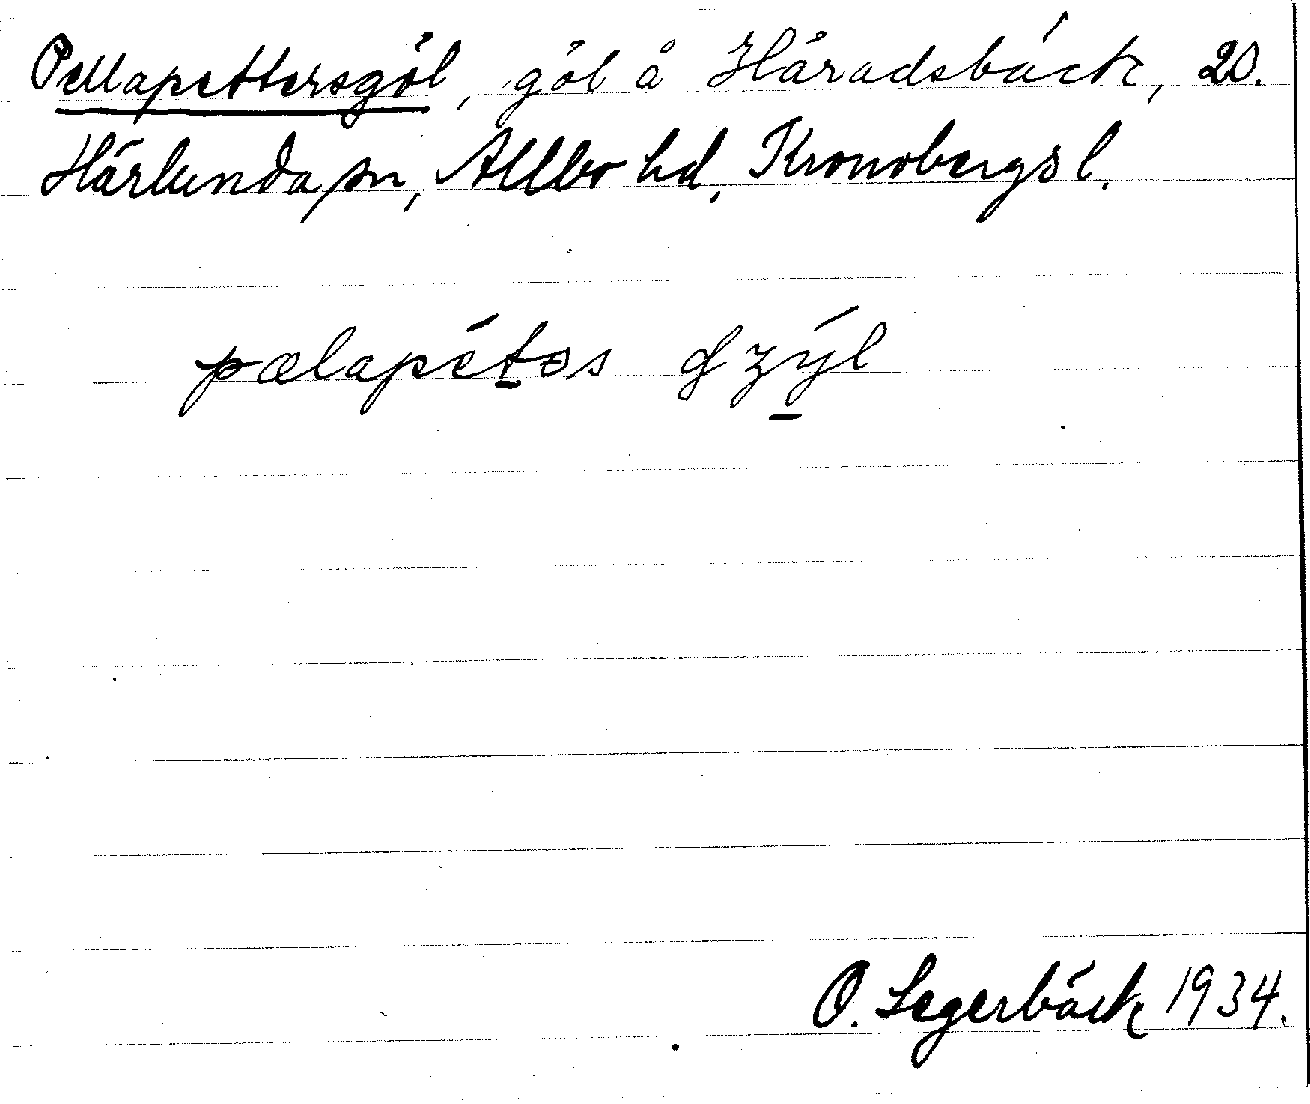 Pellapettersgöl, göl å Häradsbäck, 20.
Härlunda sn, Allbo hd, Kronobergs l.
pælapétəs ɠzýl
O. Segerbäck 1934.